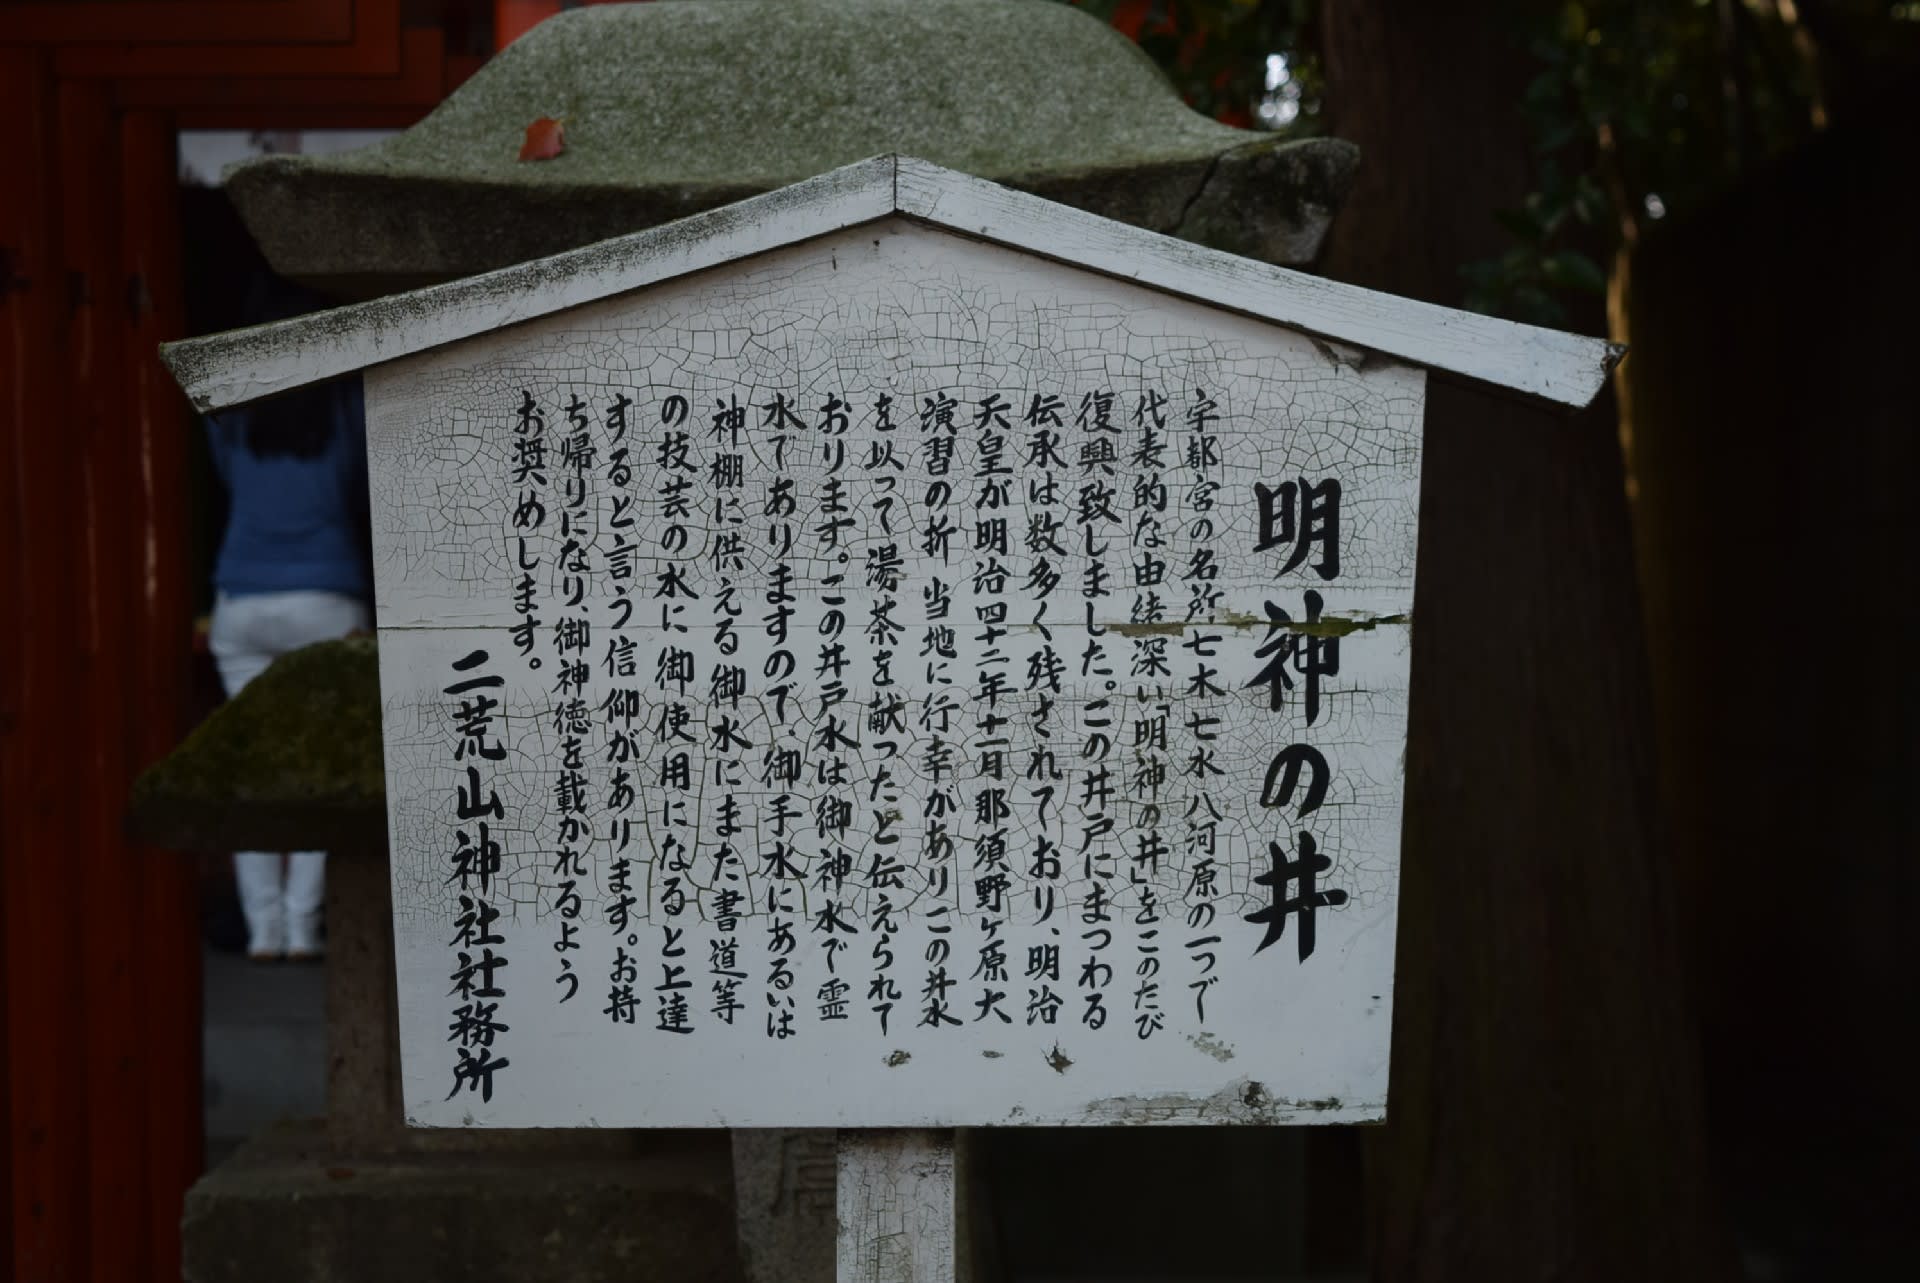 明神の井
宇都宮の名所七木七水八河原の一つで
代表的な由緒深い「明神の井」をこのたび
復興致しました。この井戸にまつわる
伝承は数多く残されており、明治
天皇が明治四十二年十一月那須野ヶ原大
演習の折 当地に行幸がありこの井水
を以って湯茶を献ったと伝えられて
おります。この井戸水は御神水で霊
水でありますので、御手水にあるいは
神棚に供える御水にまた書道等
の技芸の水に御使用になると上達
すると言う信仰があります。お持
ち帰りになり、御神徳を載かれるよう
お奨めします。
二荒山神社社務所